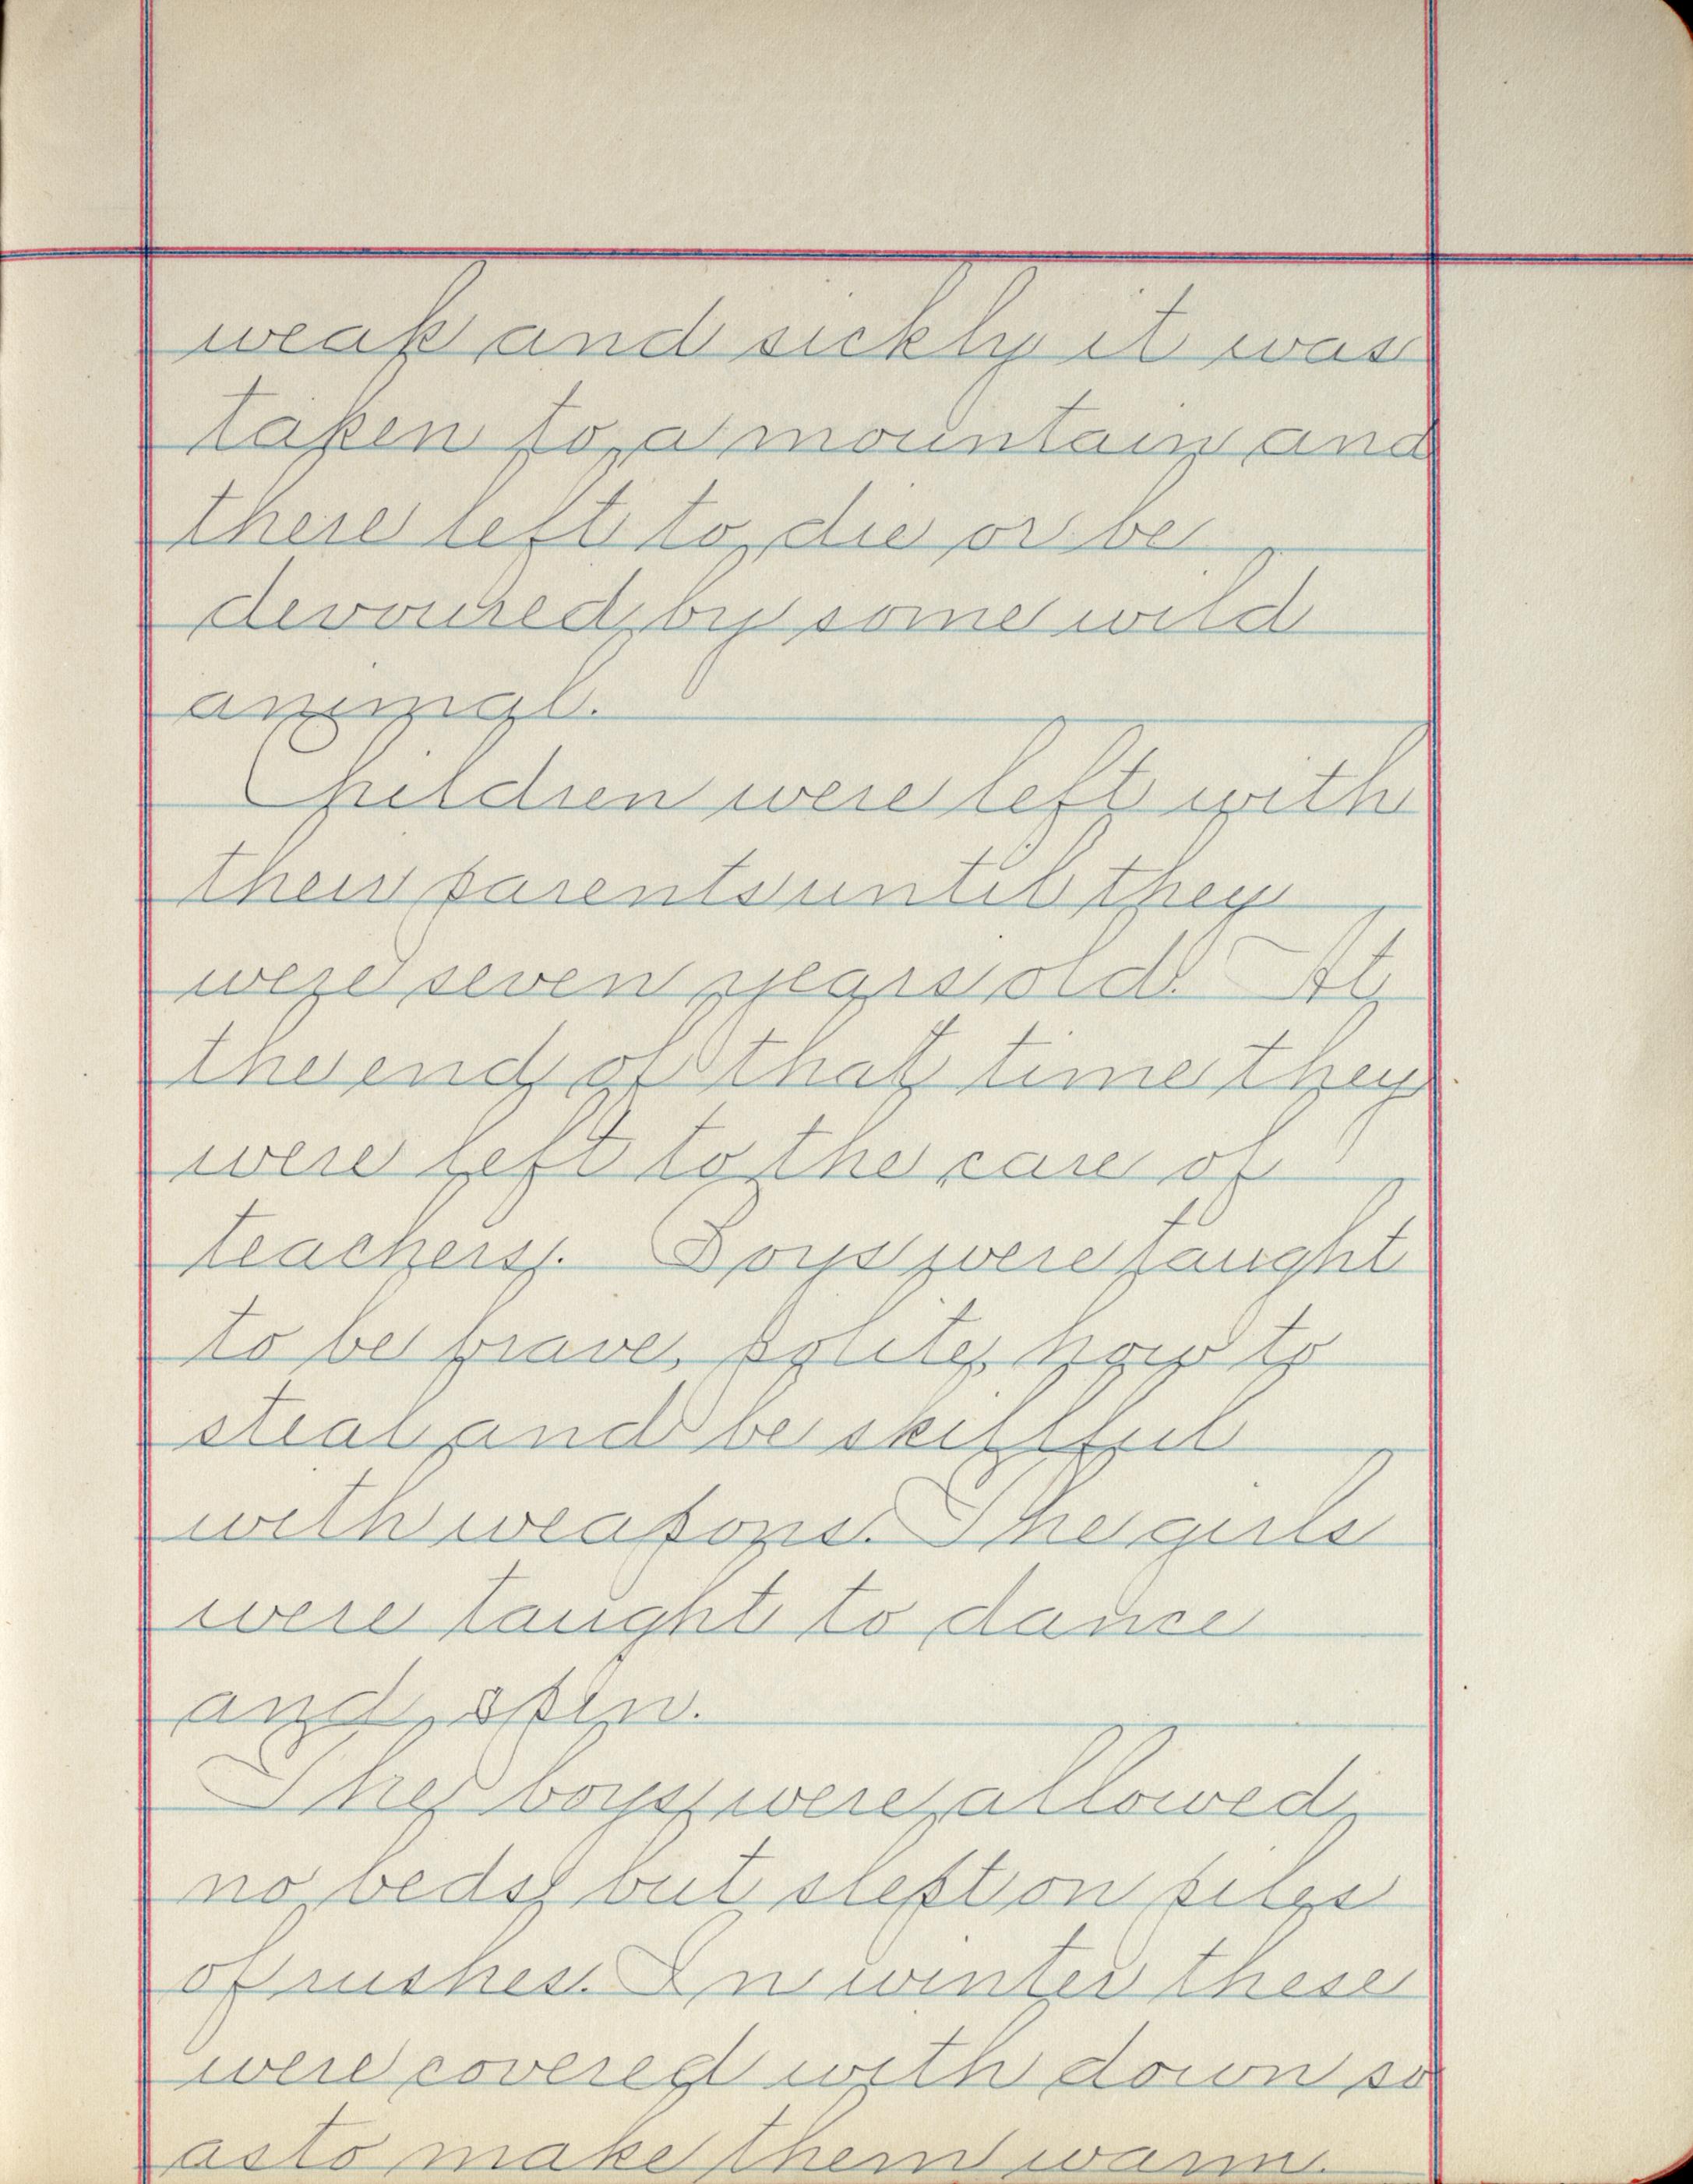 weak and sickly it was
taken to a mountain and
there left to die or be
devoured by some wild
animal.
Children were left with
their parents until they
were seven years old. At
the end of that time they
were left to the care of
teachers. Boys were taught
to be brave, polite, how to
steal and be skillful
with weapons. The girls
were taught to dance
and spin.
The boys were allowed
no beds, but slept on piles
of rushes. In winter these
were covered with down so
as to make them warm.